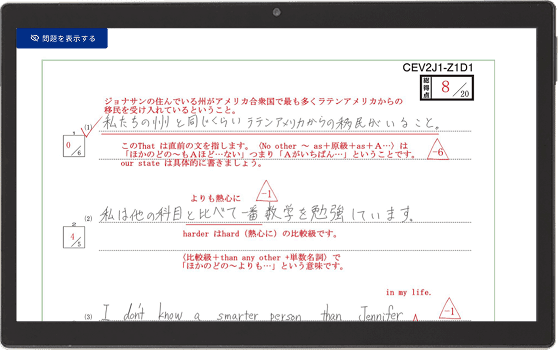 問題を表示する
CEV2J1-Z1D1
総得点 8/20
ジョナサンの住んでいる州がアメリカ合衆国で最も多くラテンアメリカからの
移民を受け入れているということ。
(1) 私たちの州と同じくらいラテンアメリカからの移民がいること。
1
0/6
このThat は直前の文を指します。〈No other ～ as+原級+as+A…〉は
「ほかのどの～もAほど…ない」つまり「Aがいちばん…」ということです。
our state は具体的に書きましょう。
-6
よりも熱心に
-1
(2) 私は他の科目と比べて一番数学を勉強しています。
2
4/5
harder はhard（熱心に）の比較級です。
〈比較級+than any other +単数名詞〉で
「ほかのどの～よりも…」という意味です。
in my life.
(3) I don't know a smarter person than Jennifer
-1